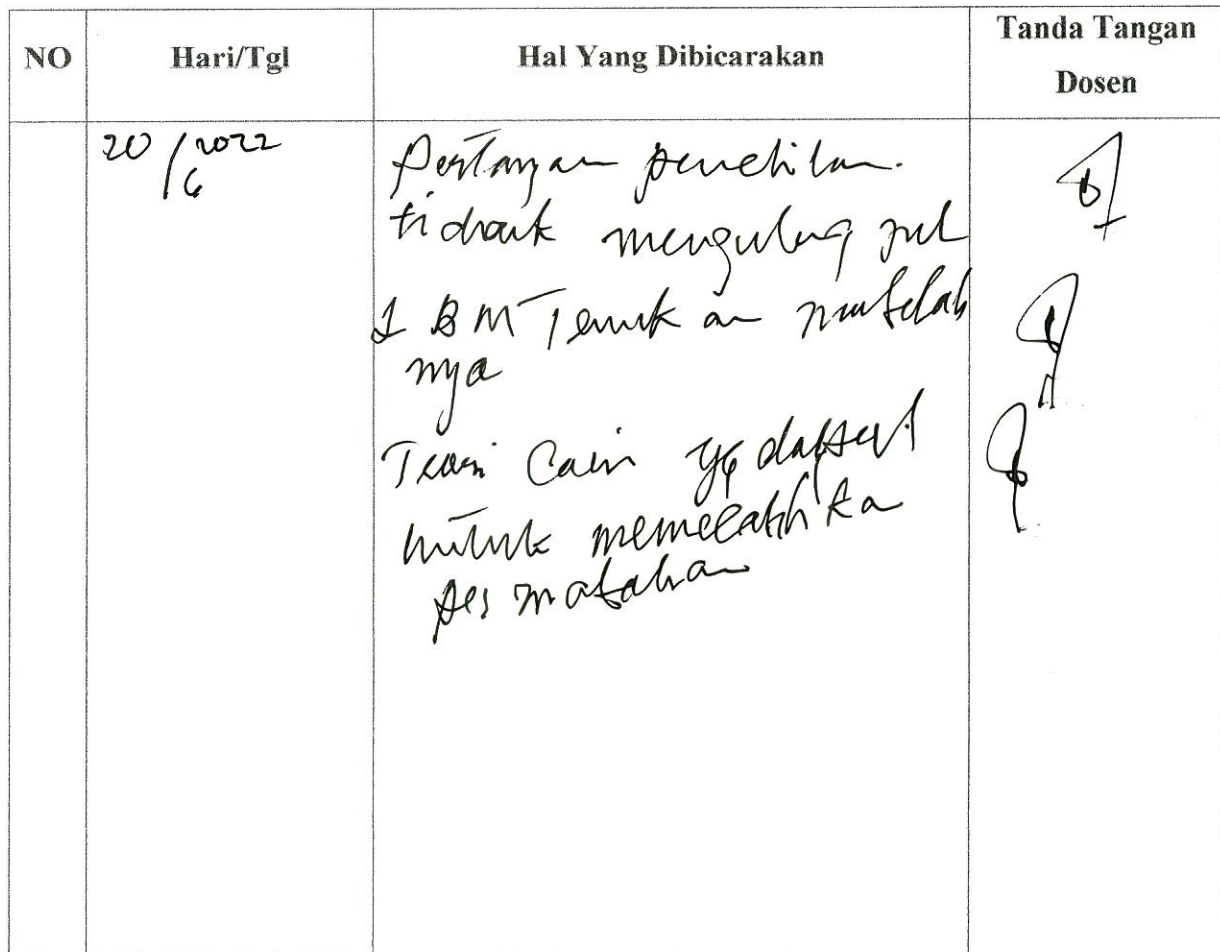 NO Hari/Tgl Hal Yang Dibicarakan Tanda Tangan Dosen
20/6 2022 Pertanyaan penelitian
tidak mengulang
LBM Temukan masalah
nya
Teori Cari yg dapat
untuk memecahka
permasalahan